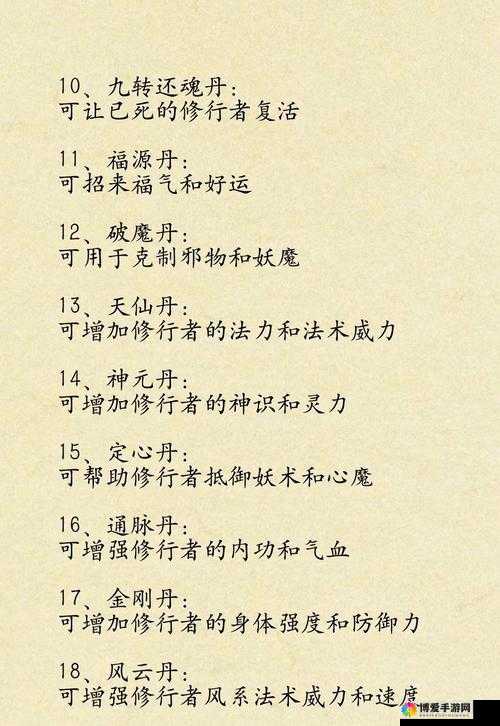 10、九转还魂丹：
可让已死的修行者复活
11、福源丹：
可招来福气和好运
12、破魔丹：
可用于克制邪物和妖魔
13、天仙丹：
可增加修行者的法力和法术威力
14、神元丹：
可增加修行者的神识和灵力
15、定心丹：
可帮助修行者抵御妖术和心魔
16、通脉丹：
可增强修行者的内功和气血
17、金刚丹：
可增加修行者的身体强度和防御力
18、风云丹：
可增强修行者风系法术威力和速度
博爱手游网